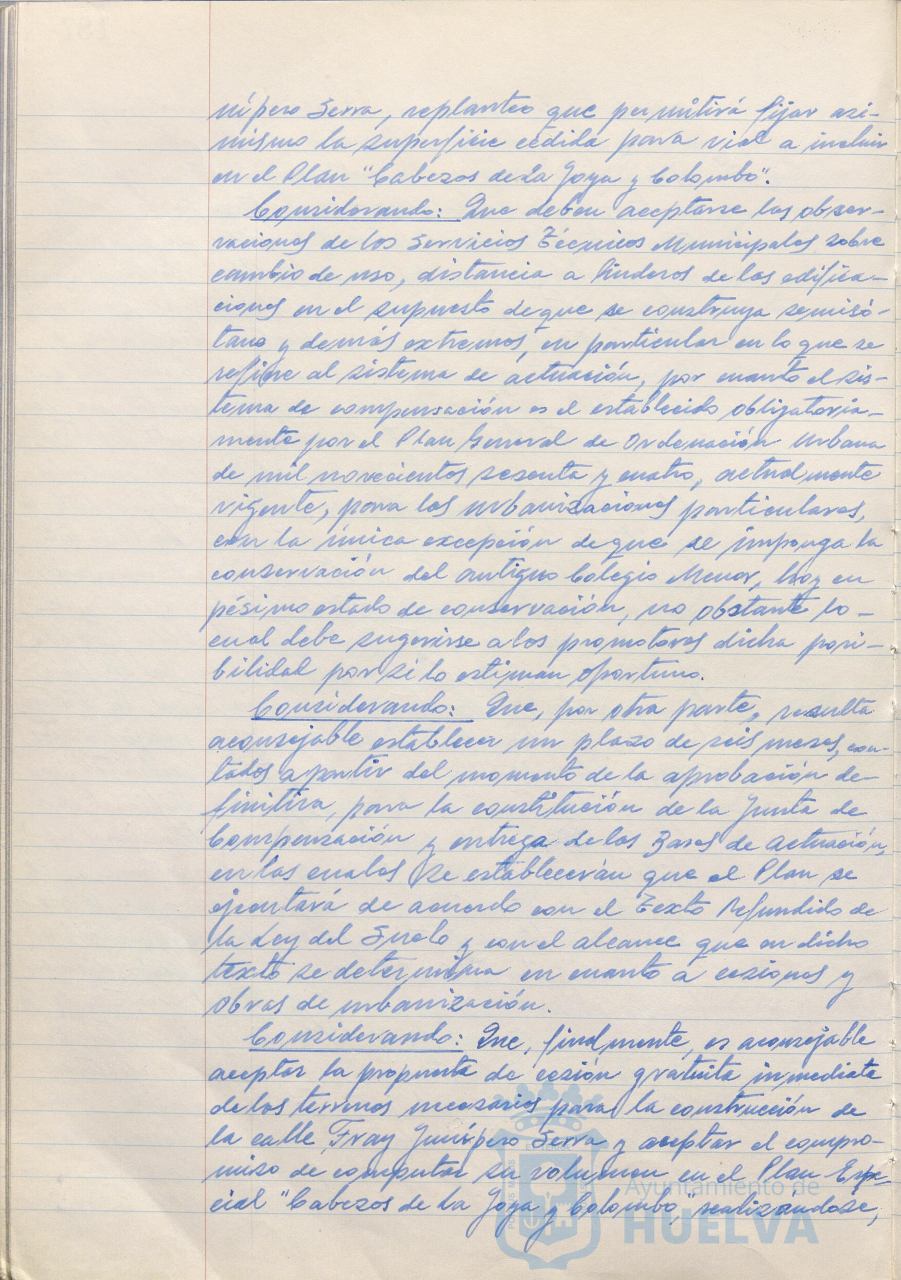 nípero Serra, replanteo que permitirá fijar asi-
mismo la superficie cedida para vial a incluir
en el Plan "Cabezos de La Joya y Colombo".
Considerando: Que deben aceptarse las obser-
vaciones de los Servicios Técnicos Municipales sobre
cambio de uso, distancia a linderos de las edifica-
ciones en el supuesto de que se construya semisó-
tano y demás extremos, en particular en lo que se
refiere al sistema de actuación, por cuanto el sis-
tema de compensación es el establecido obligatoria-
mente por el Plan General de Ordenación Urbana
de mil novecientos sesenta y cuatro, actualmente
vigente, para las urbanizaciones particulares,
con la única excepción de que se imponga la
conservación del antiguo Colegio Menor, hoy en
pésimo estado de conservación, no obstante lo
cual debe sugerirse a los promotores dicha posi-
bilidad por si lo estiman oportuno.
Considerando: Que, por otra parte, resulta
aconsejable establecer un plazo de seis meses, con-
tados a partir del momento de la aprobación de-
finitiva, para la constitución de la Junta de
Compensación y entrega de las Bases de actuación,
en las cuales se establecerán que el Plan se
ejecutará de acuerdo con el Texto Refundido de
la Ley del Suelo y con el alcance que en dicho
texto se determina en cuanto a cesiones y
obras de urbanización.
Considerando: Que, finalmente, es aconsejable
aceptar la propuesta de cesión gratuita inmediata
de los terrenos necesarios para la construcción de
la calle Fray Junípero Serra y aceptar el compro-
miso de computar su volumen en el Plan Espe-
cial "Cabezos de La Joya y Colombo, realizándose,
Ayuntamiento de
HUELVA